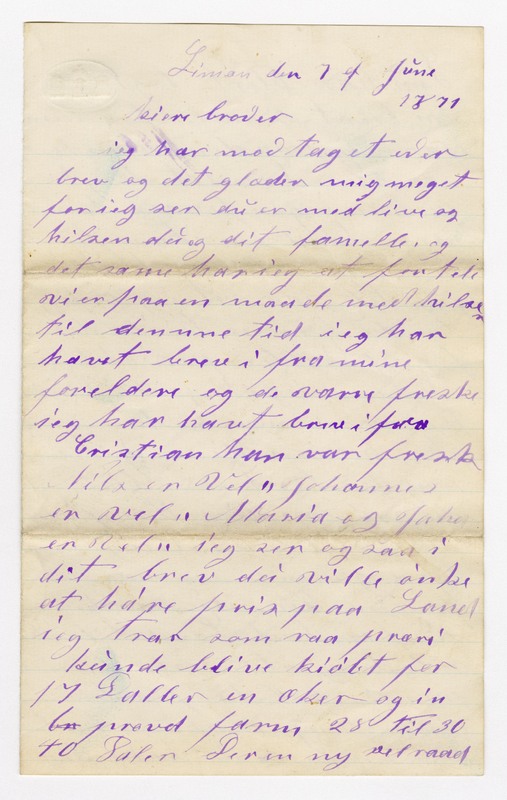 Liman den 7 of June
1871
kiere broder
ieg har mod taget eder
brev og det glader mig meget
for ieg ser du er med live og
hilsen du og dit famelle. og
det same har ieg at fortele
vi er paa en maade med hilsen
til denne tid ieg har
havt brev i fra mine
foreldere og de varre freske
ieg har havt brev i fra
Cristian han var fresk
Nils er Vel " Johannes
er vel " Maria og
er Vel " ieg ser og saa i
dit brev du ville önke
at häre pris paa Land
ieg trar som raa præri
kunde blive kiöbt for
17 Daller en Oker og in
prøvd farm 25 til 30
40 Daler Der en ny